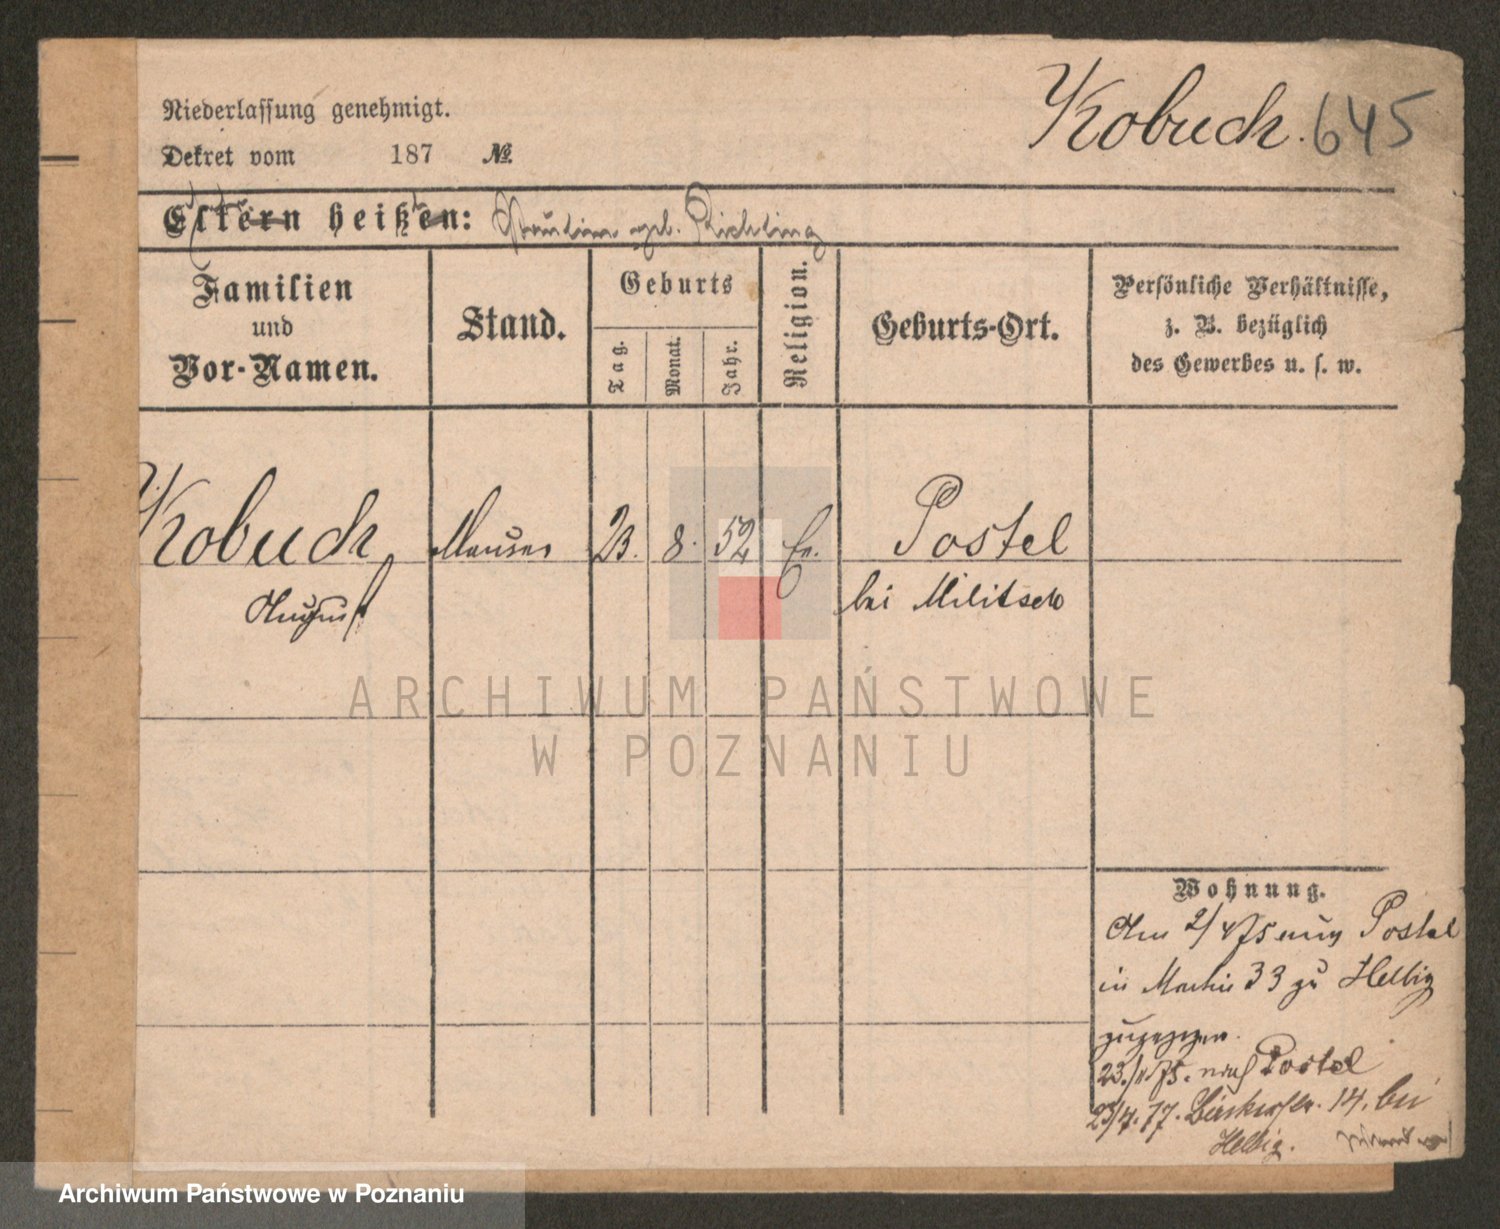 Niederlassung genehmigt.
Dekret vom 187 №.
Kobuch. 645
Eltern heißen: geb. Richling
Familien und Vor-Namen.
Stand.
Geburts
Tag.
Monat.
Jahr.
Religion.
Geburts-Ort.
Persönliche Verhältnisse,
z. B. bezüglich
des Gewerbes u. s. w.
Kobuch Maurer 23. 8. 52 Ev. Postel
August bei Militsch
ARCHIWUM PAŃSTWOWE
W POZNANIU
Wohnung.
Am 2/4 75 aus Postel
in 33 zu Helbig
zugezogen.
23./11 75. nach Postel
23/4. 77. 14. bei
Helbig.
Archiwum Państwowe w Poznaniu